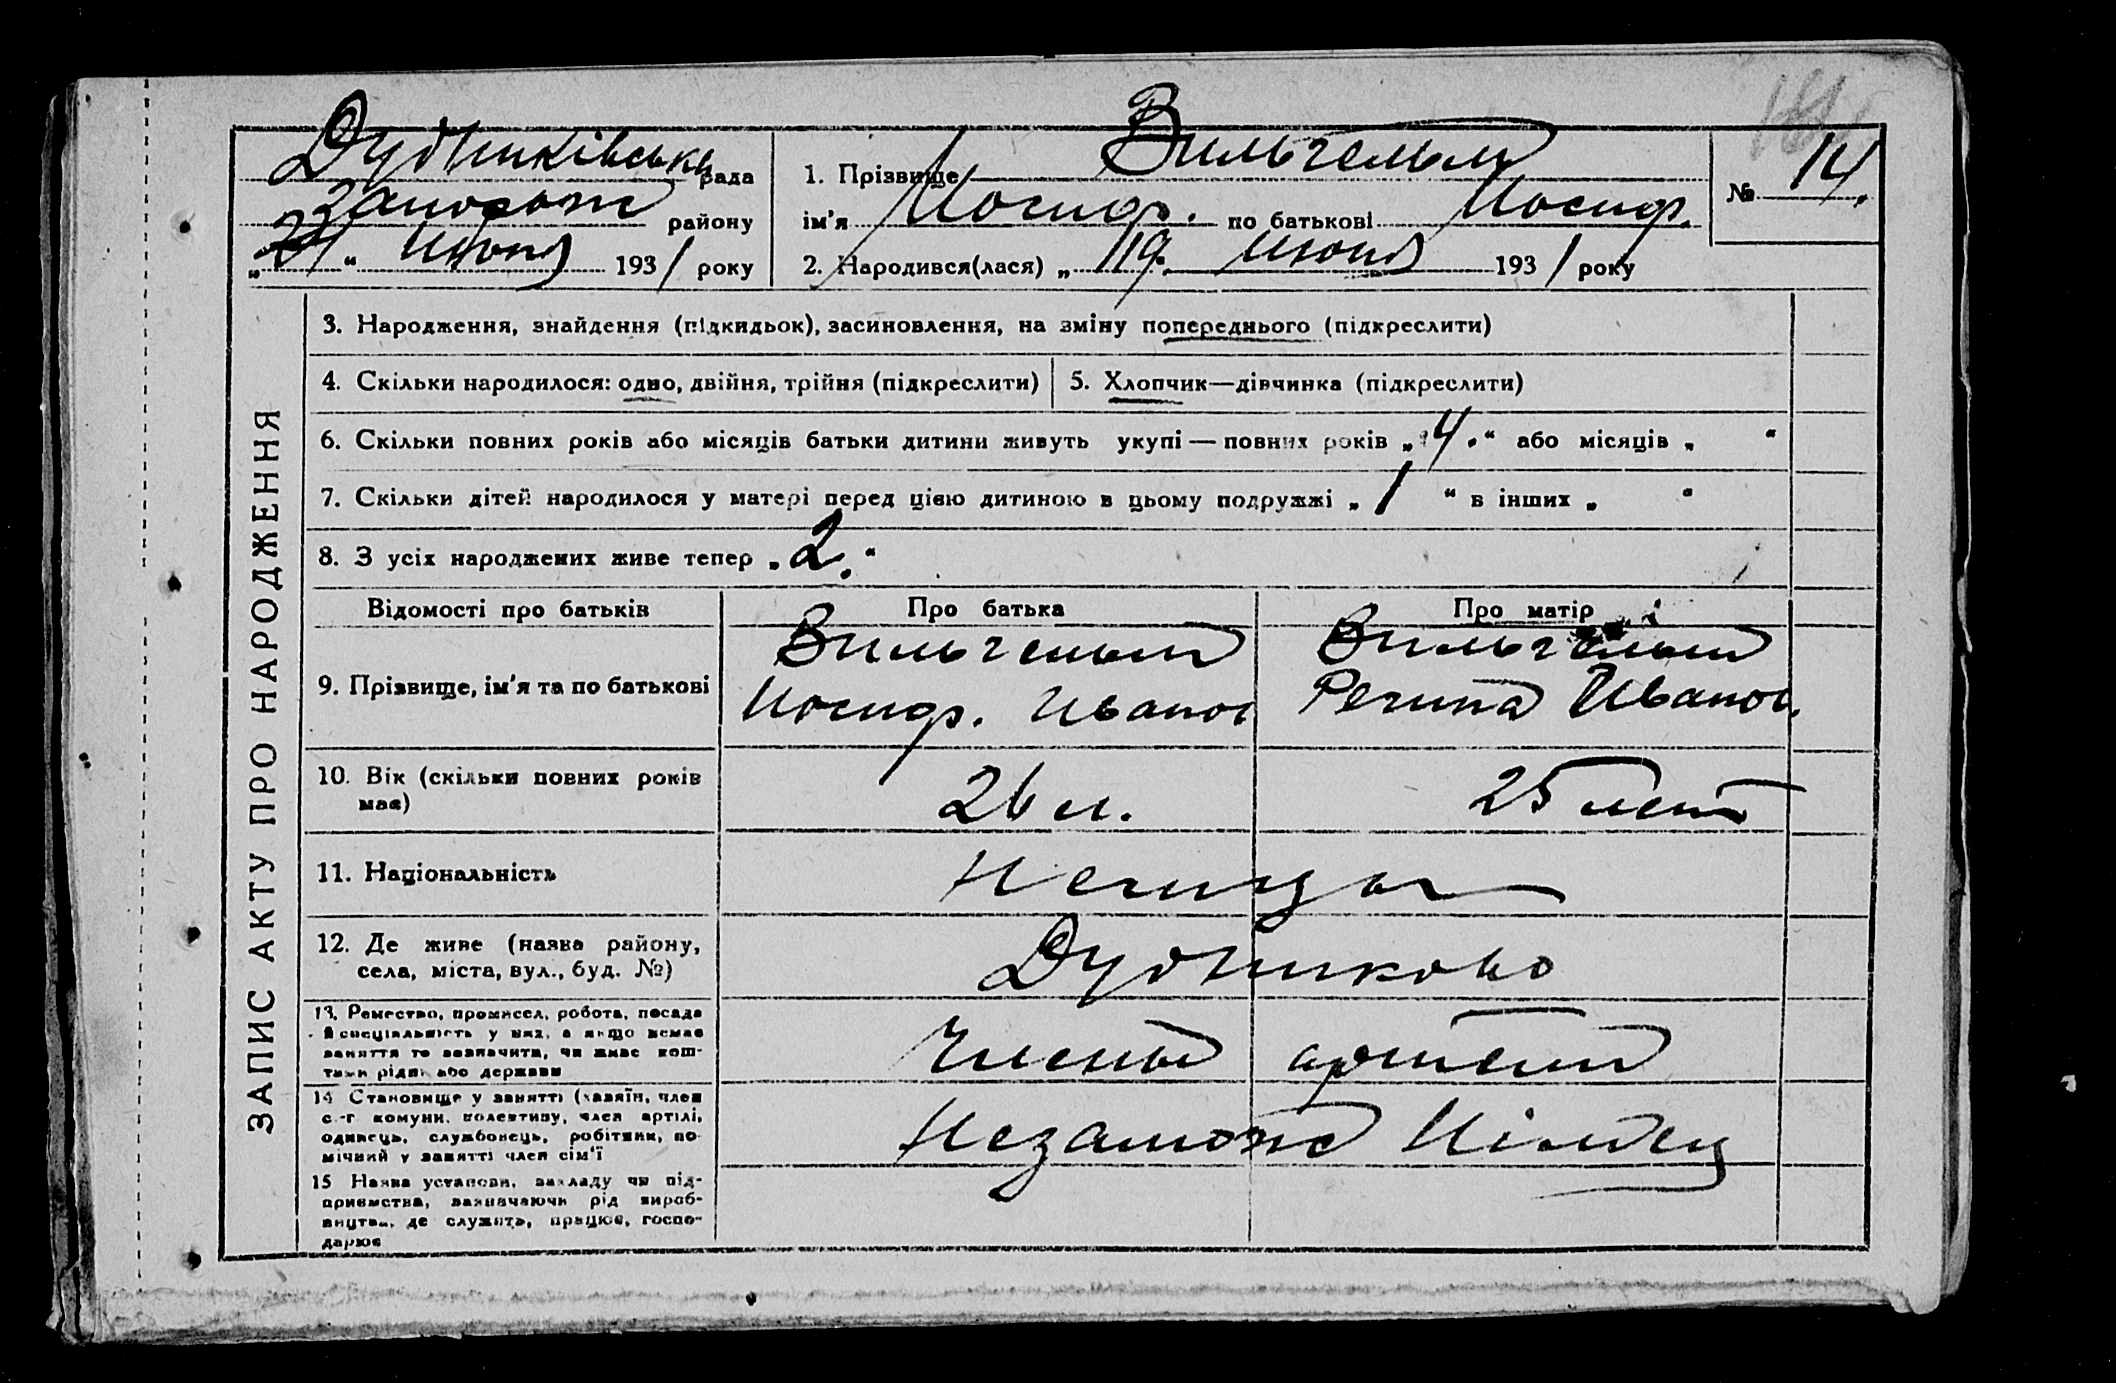 Дудниківська рада
Запорож району
„21“ Июня 1931 року
1. Прізвище Вильгельм
ім'я Иосиф. по батькові Иосиф.
2. Народився(лася) „19. Июня 1931 року
№ 14.
ЗАПИС АКТУ ПРО НАРОДЖЕННЯ
3. Народження, знайдення (підкидьок), засиновлення, на зміну попереднього (підкреслити)
4. Скільки народилося: одно, двійня, трійня (підкреслити)
5. Хлопчик—дівчинка (підкреслити)
6. Скільки повних років або місяців батьки дитини живуть укупі — повних років „4.“ або місяців „ “
7. Скільки дітей народилося у матері перед цією дитиною в цьому подружжі „1 “ в інших „ “
8. З усіх народжених живе тепер „2.“
Відомості про батьків
Про батька
Про матір
9. Прізвище, ім'я та по батькові
Вильгельм
Иосиф. Иванов
Вильгельм
Регина Иванов.
10. Вік (скільки повних років
має)
26 л.
25 лет
11. Національність
Немцы
12. Де живе (назва району,
села, міста, вул., буд. №)
Дудниково
13. Ремество, промисел, робота, посада
й спеціальність у них, а якщо немає
заняття то зазначити, чи живе кош-
тами рідні або держави
Члены артели
14 Становище у занятті (хазяїн, член
с.-г комуни, колективу, член артілі,
одинець, службовець, робітник, по-
мічний у занятті член сім'ї
Незаможн
15 Назва установи, закладу чи під-
приємства, зазначаючи рід вироб-
ництва, де служить, працює, госпо-
дарює